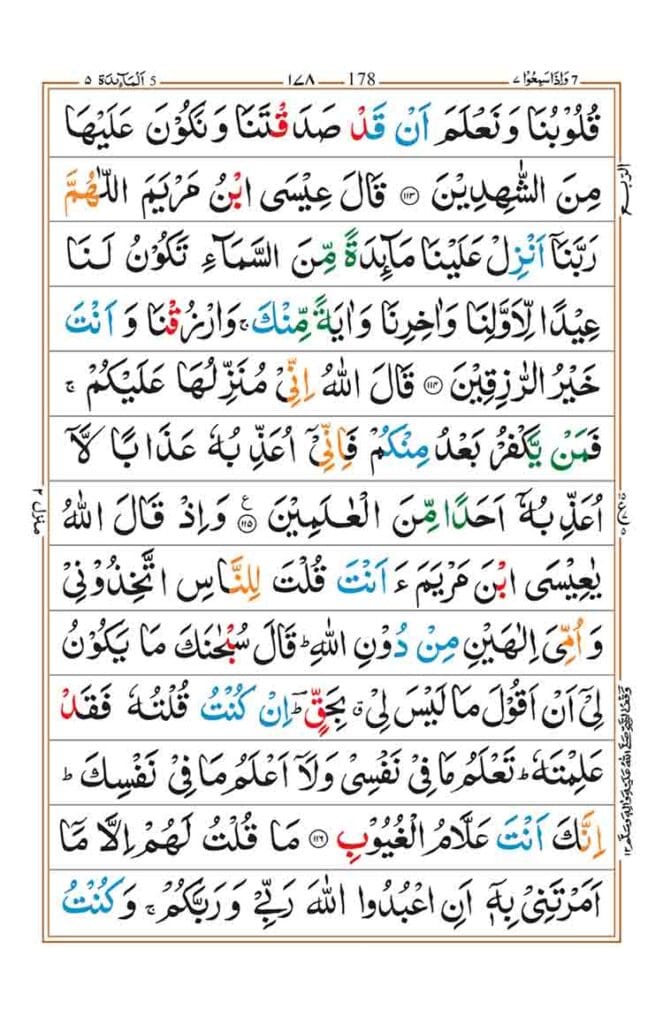 وَاِذَا سَمِعُوْا ٧ 7 178 ١٧٨ 5 اَلْمَآئِدَة ٥
قُلُوْبُنَا وَنَعْلَمَ اَنْ قَدْ صَدَقْتَنَا وَنَكُوْنَ عَلَيْهَا
مِنَ الشّٰهِدِيْنَ ۝١١٣ قَالَ عِيْسَى ابْنُ مَرْيَمَ اللّٰهُمَّ
الربع
رَبَّنَاۤ اَنْزِلْ عَلَيْنَا مَآئِدَةً مِّنَ السَّمَآءِ تَكُوْنُ لَنَا
عِيْدًا لِّاَوَّلِنَا وَاٰخِرِنَا وَاٰيَةً مِّنْكَ ۚ وَارْزُقْنَا وَاَنْتَ
خَيْرُ الرّٰزِقِيْنَ ۝١١٤ قَالَ اللّٰهُ اِنِّيْ مُنَزِّلُهَا عَلَيْكُمْ ۚ
فَمَنْ يَّكْفُرْ بَعْدُ مِنْكُمْ فَاِنِّيْۤ اُعَذِّبُهٗ عَذَابًا لَّاۤ
اُعَذِّبُهٗۤ اَحَدًا مِّنَ الْعٰلَمِيْنَ ۝١١٥ ع وَاِذْ قَالَ اللّٰهُ
منزل ٢
يٰعِيْسَى ابْنَ مَرْيَمَ ءَاَنْتَ قُلْتَ لِلنَّاسِ اتَّخِذُوْنِيْ
وَاُمِّيَ اِلٰهَيْنِ مِنْ دُوْنِ اللّٰهِ ؕ قَالَ سُبْحٰنَكَ مَا يَكُوْنُ
لِيْۤ اَنْ اَقُوْلَ مَا لَيْسَ لِيْ ۗ بِحَقٍّ ؕ اِنْ كُنْتُ قُلْتُهٗ فَقَدْ
عَلِمْتَهٗ ؕ تَعْلَمُ مَا فِيْ نَفْسِيْ وَلَاۤ اَعْلَمُ مَا فِيْ نَفْسِكَ ؕ
اِنَّكَ اَنْتَ عَلَّامُ الْغُيُوْبِ ۝١١٦ مَا قُلْتُ لَهُمْ اِلَّا مَاۤ
اَمَرْتَنِيْ بِهٖۤ اَنِ اعْبُدُوا اللّٰهَ رَبِّيْ وَرَبَّكُمْ ۚ وَكُنْتُ